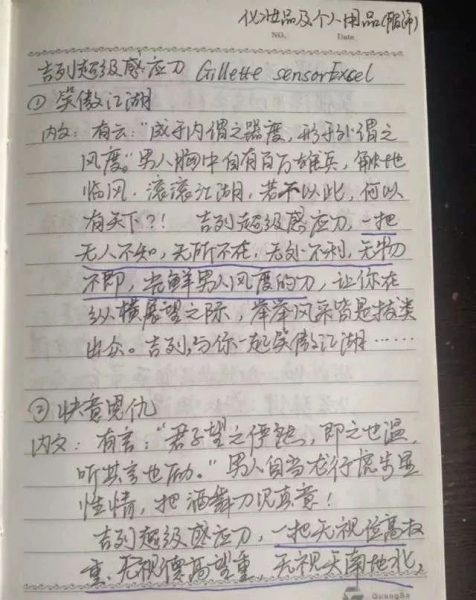 化妆品及个人用品(服饰)
NO. Date
吉列超级感应刀 Gillette sensorExcel
① 笑傲江湖
内文: 有云:"成于内谓之器度, 形于外谓之
风度。"男人胸中自有百万雄兵, 触地
临风. 滚滚江湖, 若不以此, 何以
有天下?! 吉列超级感应刀, 一把
无人不知, 无所不在, 无处不利, 无物
不即, 尝鲜男人风度的刀, 让你在
纵横展望之际, 举举风采皆是拔类
出众。吉列, 与你一起笑傲江湖……
② 快意恩仇
内文: 有言:"君子望之俨然, 即之也温,
听其言也励。"男人自当龙行虎步显
性情, 把酒舞刀识真意!
吉列超级感应刀, 一把无视位高权
重, 无视德高望重, 无视天南地北,
GuangBo